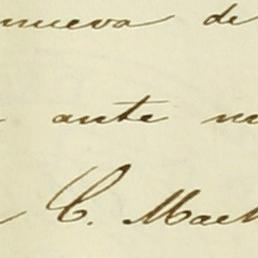 nueva de
ante
C. Mac